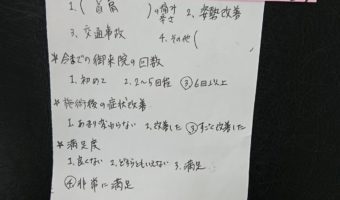 1.(首肩)の痛み辛さ 2.姿勢改善
3.交通事故 4.その他(
*今までの御来院の回数
1.初めて 2.2〜5回程 ③6回以上
*施術後の症状改善
1.あまり変わらない 2.改善した ③すごく改善した
*満足度
1.良くない 2.どちらともいえない 3.満足
④非常に満足